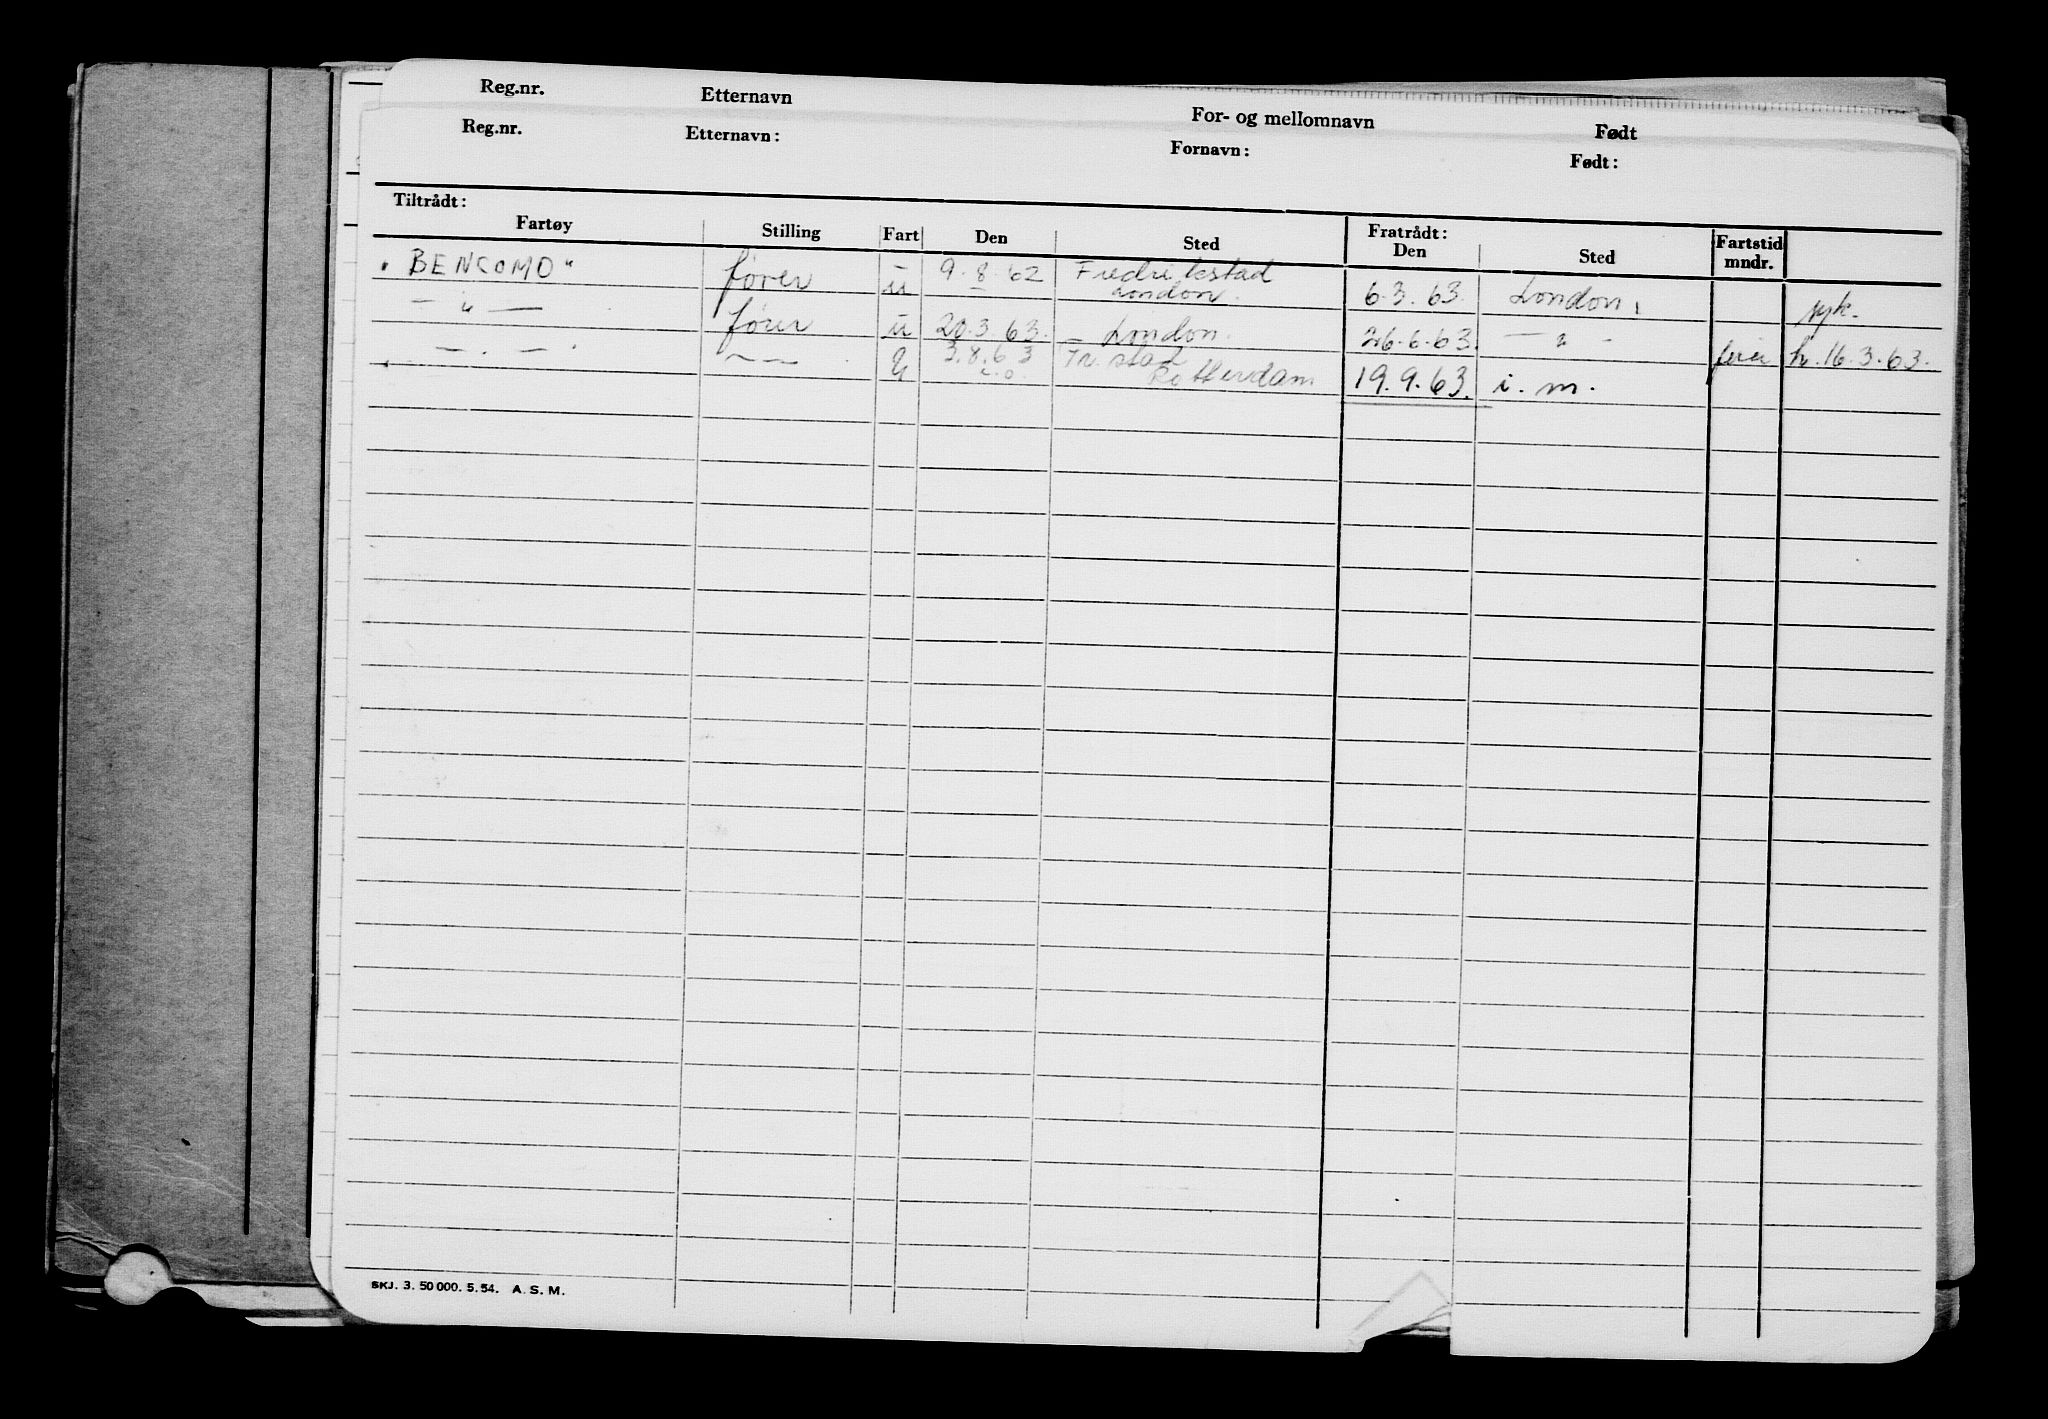 Reg.nr. Etternavn For- og mellomnavn Født
Reg.nr. Etternavn: Fornavn: Født:
Tiltrådt: Fratrådt:
Fartøy Stilling Fart Den Sted Den Sted Fartstid mndr.
"BENCOMO" fører u 9.8.62 Fredrikstad
— " — u London. 6.3.63. London. syk.
fører u 20.3.63. London. 26.6.63. — " —
— . — — — U 3.8.63 Fr.stad h. 16.3.63.
Rotterdam 19.9.63. i.m.
SKJ. 3. 50 000. 5. 54. A. S. M.